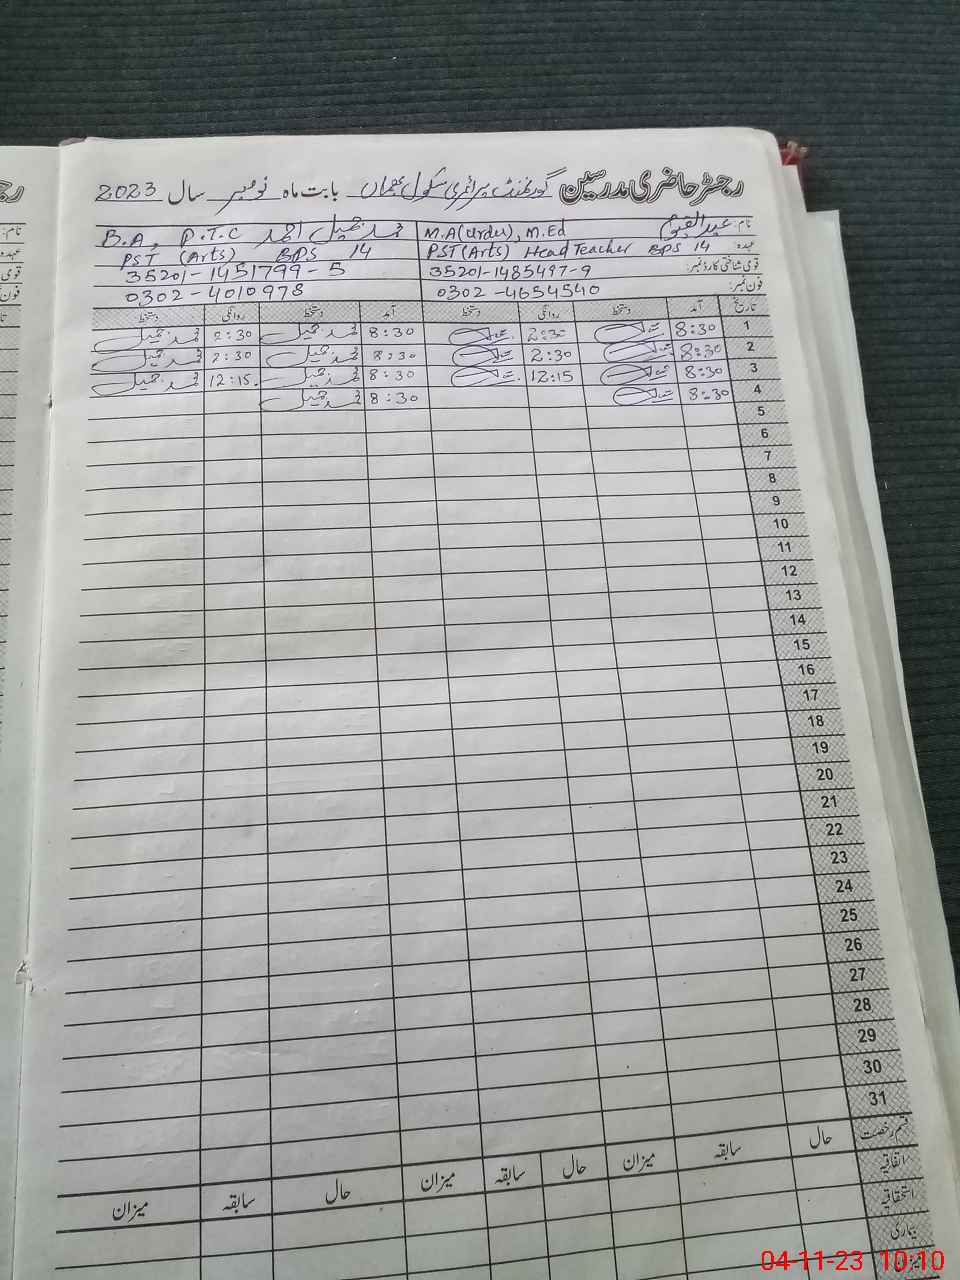 رجسٹر حاضری مدرسین گورنمنٹ پرائمری سکول بابت ماہ نومبر سال 2023
نام: عبدالقیوم M.A(Urdu), M.Ed محمد جمیل احمد B.A, P.T.C
عہدہ: PST(Arts) Head Teacher BPS 14 PST (Arts) BPS 14
قومی شناختی کارڈ نمبر: 35201-1485497-9 35201-1451799-5
فون نمبر: 0302-4654540 0302-4010978
تاریخ آمد دستخط روانگی دستخط آمد دستخط روانگی دستخط
1 8:30 2:30 8:30 محمد جمیل 2:30 محمد جمیل
2 8:30 2:30 8:30 محمد جمیل 2:30 محمد جمیل
3 8:30 12:15 8:30 محمد جمیل 12:15 محمد جمیل
4 8:30 8:30 محمد جمیل
5
6
7
8
9
10
11
12
13
14
15
16
17
18
19
20
21
22
23
24
25
26
27
28
29
30
31
قسم رخصت حال سابقہ میزان حال سابقہ میزان حال سابقہ میزان
اتفاقیہ
استحقاقیہ
بیماری
میزان
04-11-23 10:10